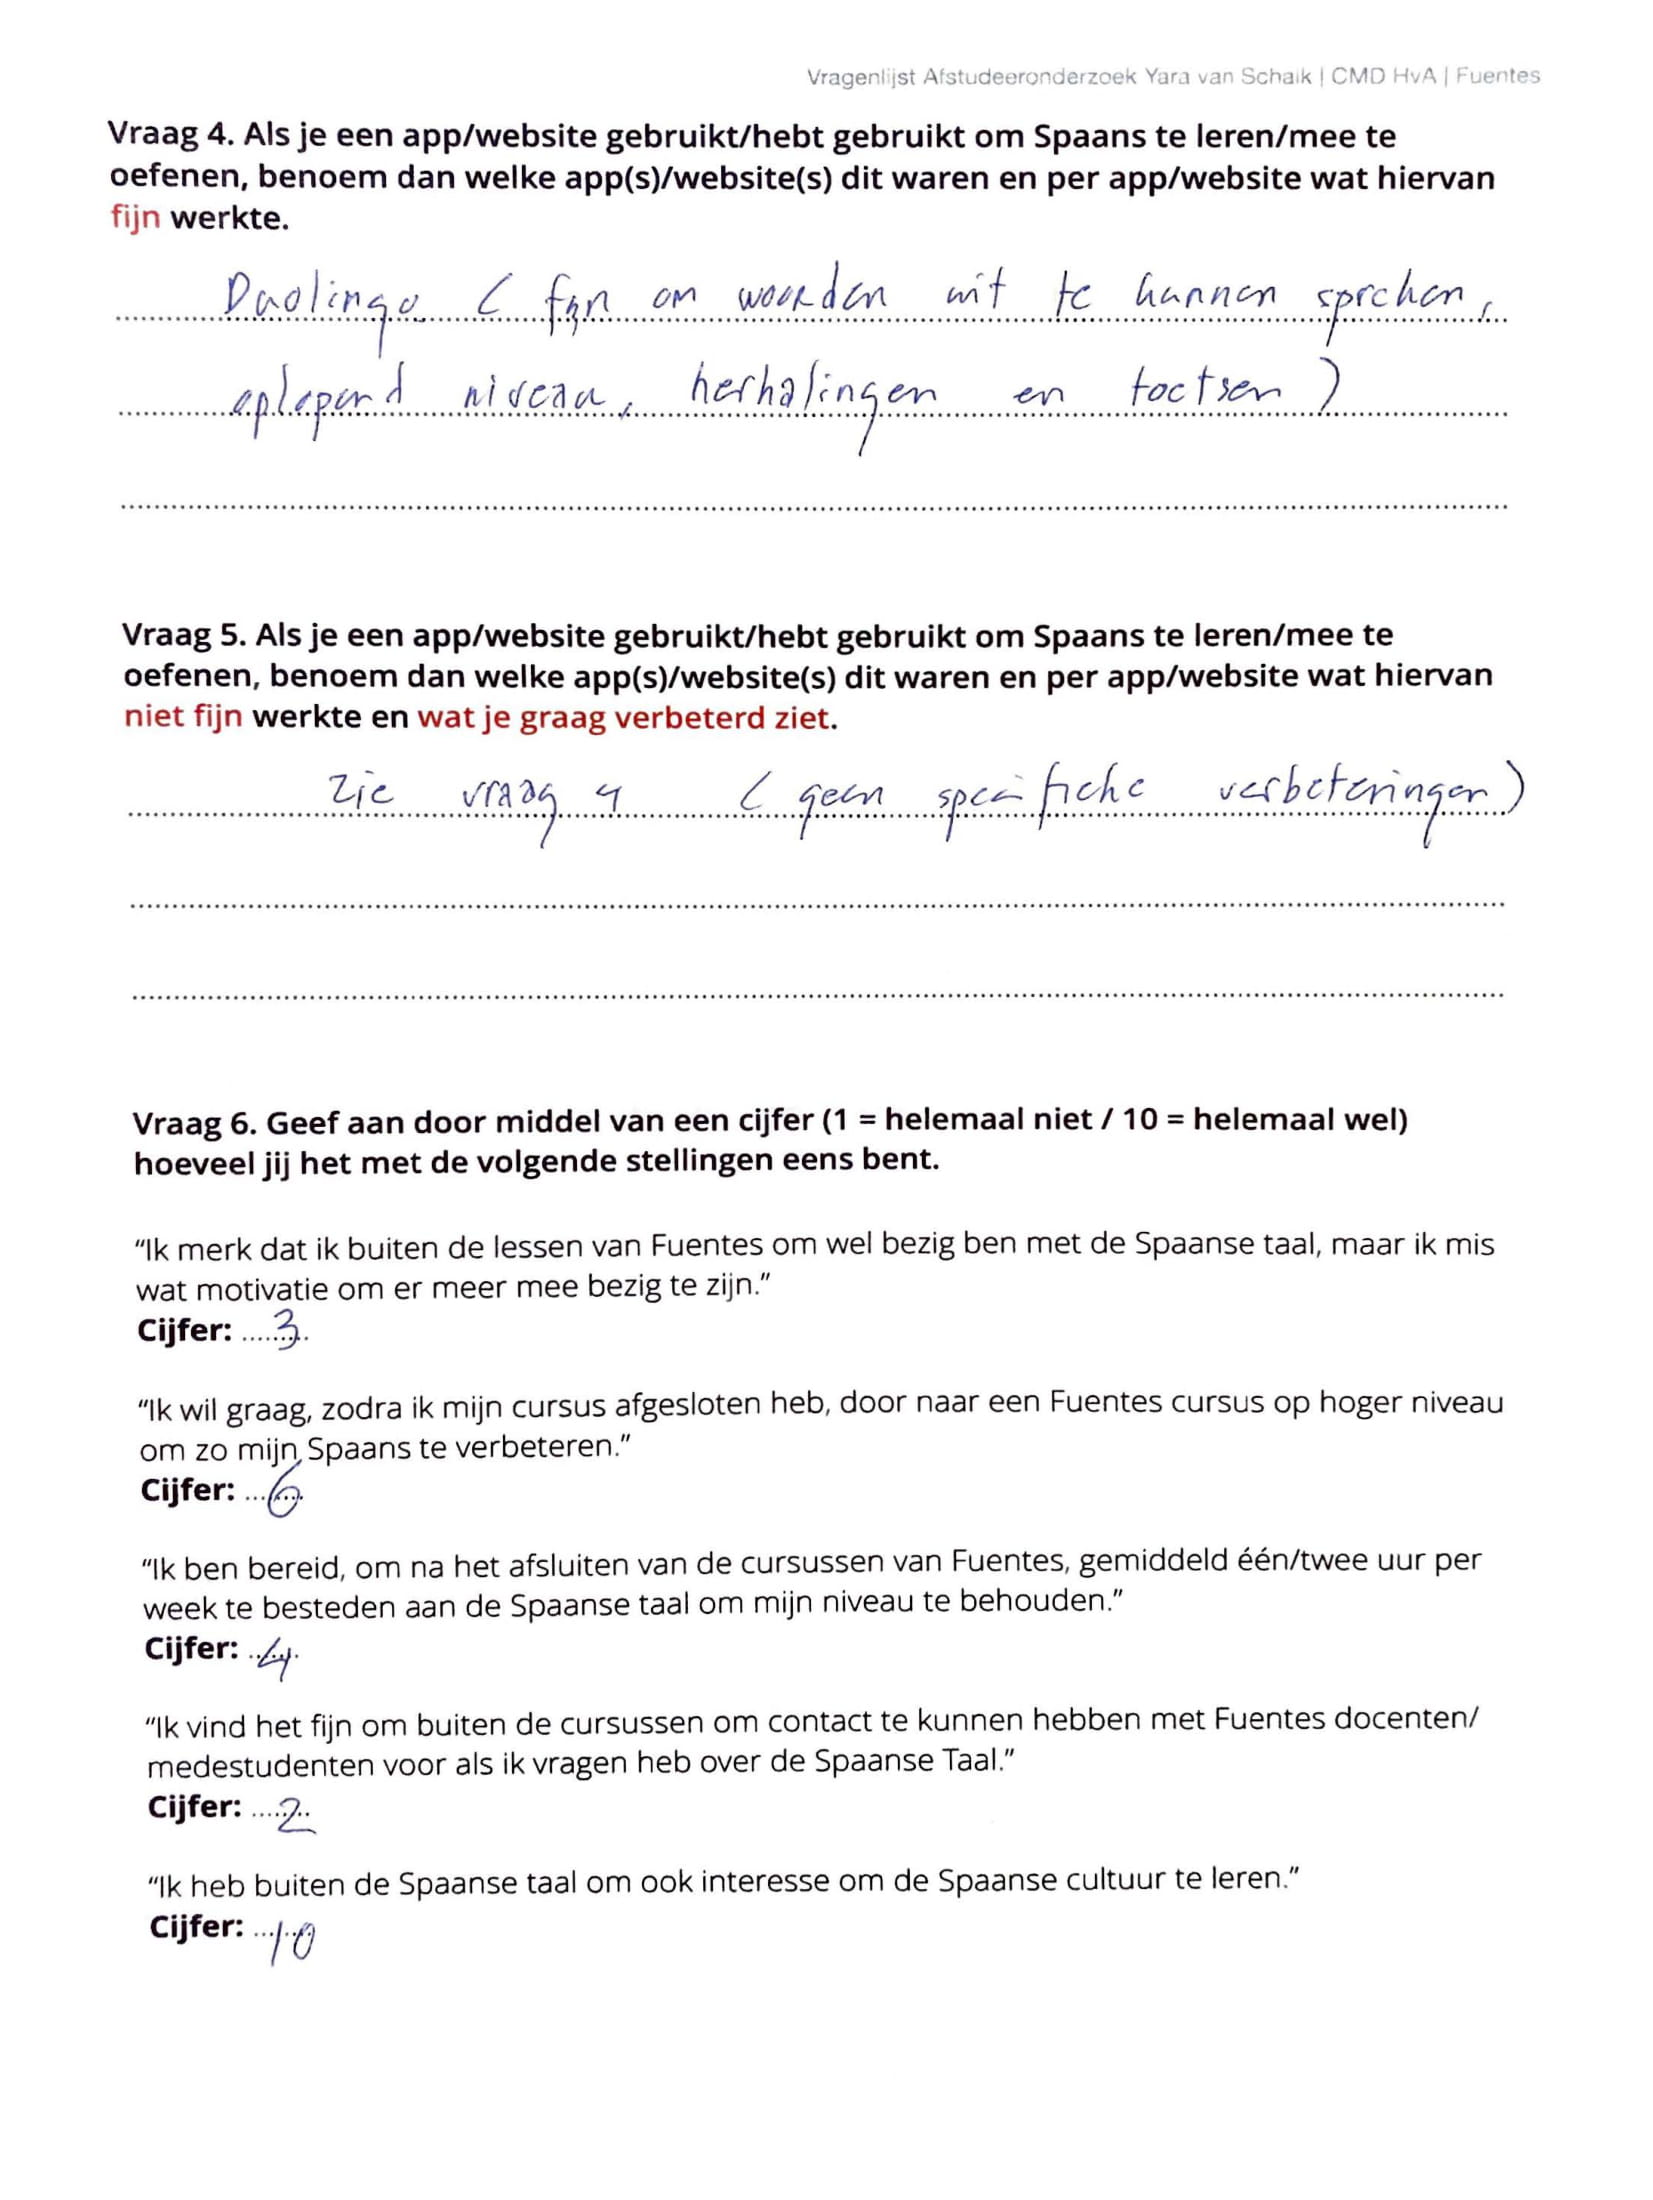 Vragenlijst Afstudeeronderzoek Yara van Schaik | CMD HvA | Fuentes
Vraag 4. Als je een app/website gebruikt/hebt gebruikt om Spaans te leren/mee te
oefenen, benoem dan welke app(s)/website(s) dit waren en per app/website wat hiervan
fijn werkte.
Duolingo ( fijn om woorden uit te kunnen spreken,
oplopend niveau, herhalingen en toetsen )
Vraag 5. Als je een app/website gebruikt/hebt gebruikt om Spaans te leren/mee te
oefenen, benoem dan welke app(s)/website(s) dit waren en per app/website wat hiervan
niet fijn werkte en wat je graag verbeterd ziet.
zie vraag 4 ( geen specifieke verbeteringen )
Vraag 6. Geef aan door middel van een cijfer (1 = helemaal niet / 10 = helemaal wel)
hoeveel jij het met de volgende stellingen eens bent.
“Ik merk dat ik buiten de lessen van Fuentes om wel bezig ben met de Spaanse taal, maar ik mis
wat motivatie om er meer mee bezig te zijn.”
Cijfer: 3
“Ik wil graag, zodra ik mijn cursus afgesloten heb, door naar een Fuentes cursus op hoger niveau
om zo mijn Spaans te verbeteren.”
Cijfer: 6
“Ik ben bereid, om na het afsluiten van de cursussen van Fuentes, gemiddeld één/twee uur per
week te besteden aan de Spaanse taal om mijn niveau te behouden.”
Cijfer: 4
“Ik vind het fijn om buiten de cursussen om contact te kunnen hebben met Fuentes docenten/
medestudenten voor als ik vragen heb over de Spaanse Taal.”
Cijfer: 2
“Ik heb buiten de Spaanse taal om ook interesse om de Spaanse cultuur te leren.”
Cijfer: 10